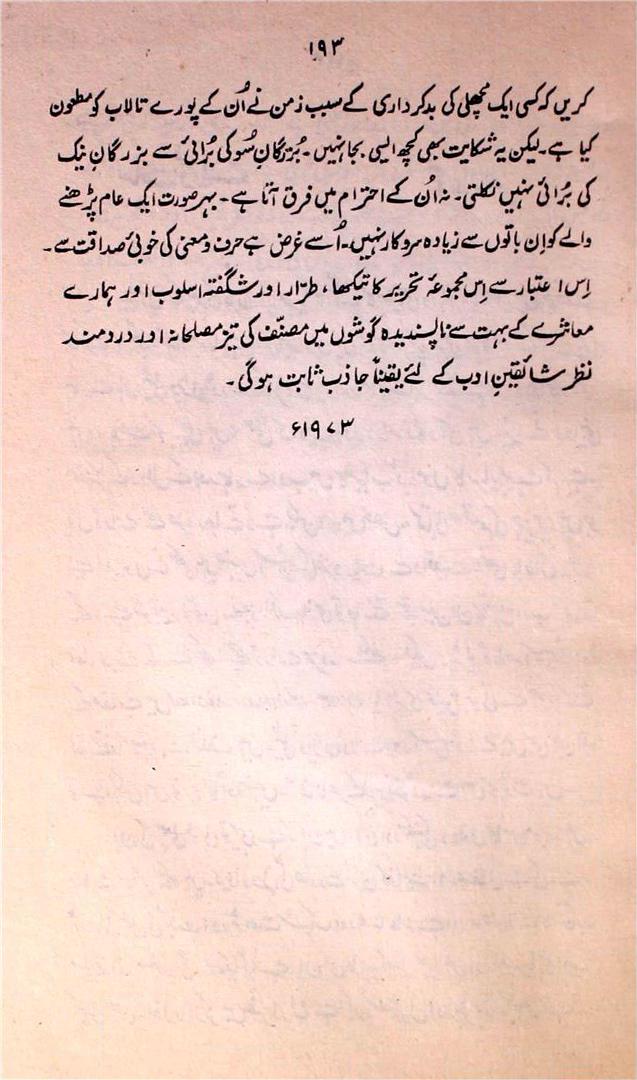 ۱۹۳
کریں کہ کسی ایک مچھلی کی بدکرداری کے سبب زمن نے اُن کے پورے تالاب کو مطعون
کیا ہے۔ لیکن یہ شکایت بھی کچھ ایسی بجا نہیں۔ بُزرگانِ سُو کی بُرائی سے بزرگانِ نیک
کی بُرائی نہیں نکلتی۔ نہ اُن کے احترام میں فرق آتا ہے۔ بہرصورت ایک عام پڑھنے
والے کو اِن باتوں سے زیادہ سروکار نہیں۔ اُسے غرض ہے حرف و معنی کی خوبیٔ صداقت سے۔
اِس اعتبار سے اِس مجموعۂ تحریر کا تیکھا، طرّار اور شگفتہ اسلوب اور ہمارے
معاشرے کے بہت سے ناپسندیدہ گوشوں میں مصنّف کی تیز مصلحانہ اور دردمند
نظر شائقینِ ادب کے لئے یقیناً جاذب ثابت ہوگی۔
۱۹۷۳ء